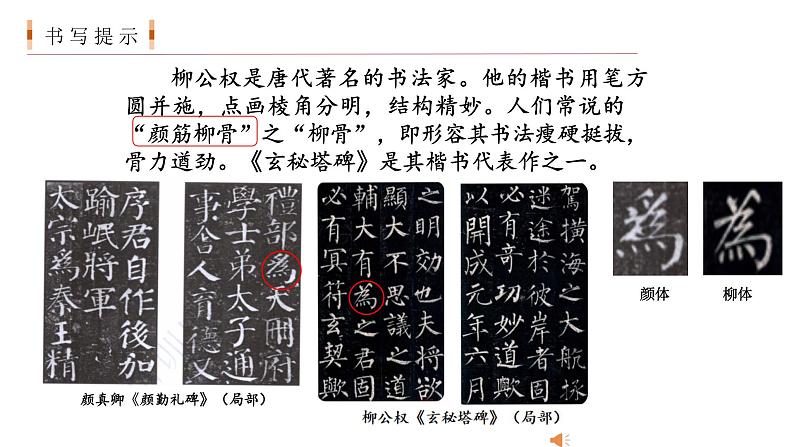 书写提示
柳公权是唐代著名的书法家。他的楷书用笔方
圆并施，点画棱角分明，结构精妙。人们常说的
“颜筋柳骨”之“柳骨”，即形容其书法瘦硬挺拔，
骨力道劲。《玄秘塔碑》是其楷书代表作之一。
序君自作後加
踰岷將軍
太宗為秦王精
禮部為天冊府
學士弟太子通
事舍人育德又
颜真卿《颜勤礼碑》（局部）
之明効也夫將欲
顯大不思議之道
輔大有為之君固
必有冥符玄契歟
駕橫海之大航拯
迷途於彼岸者固
必有奇功妙道歟
以開成元年六月
柳公权《玄秘塔碑》（局部）
為
颜体
為
柳体